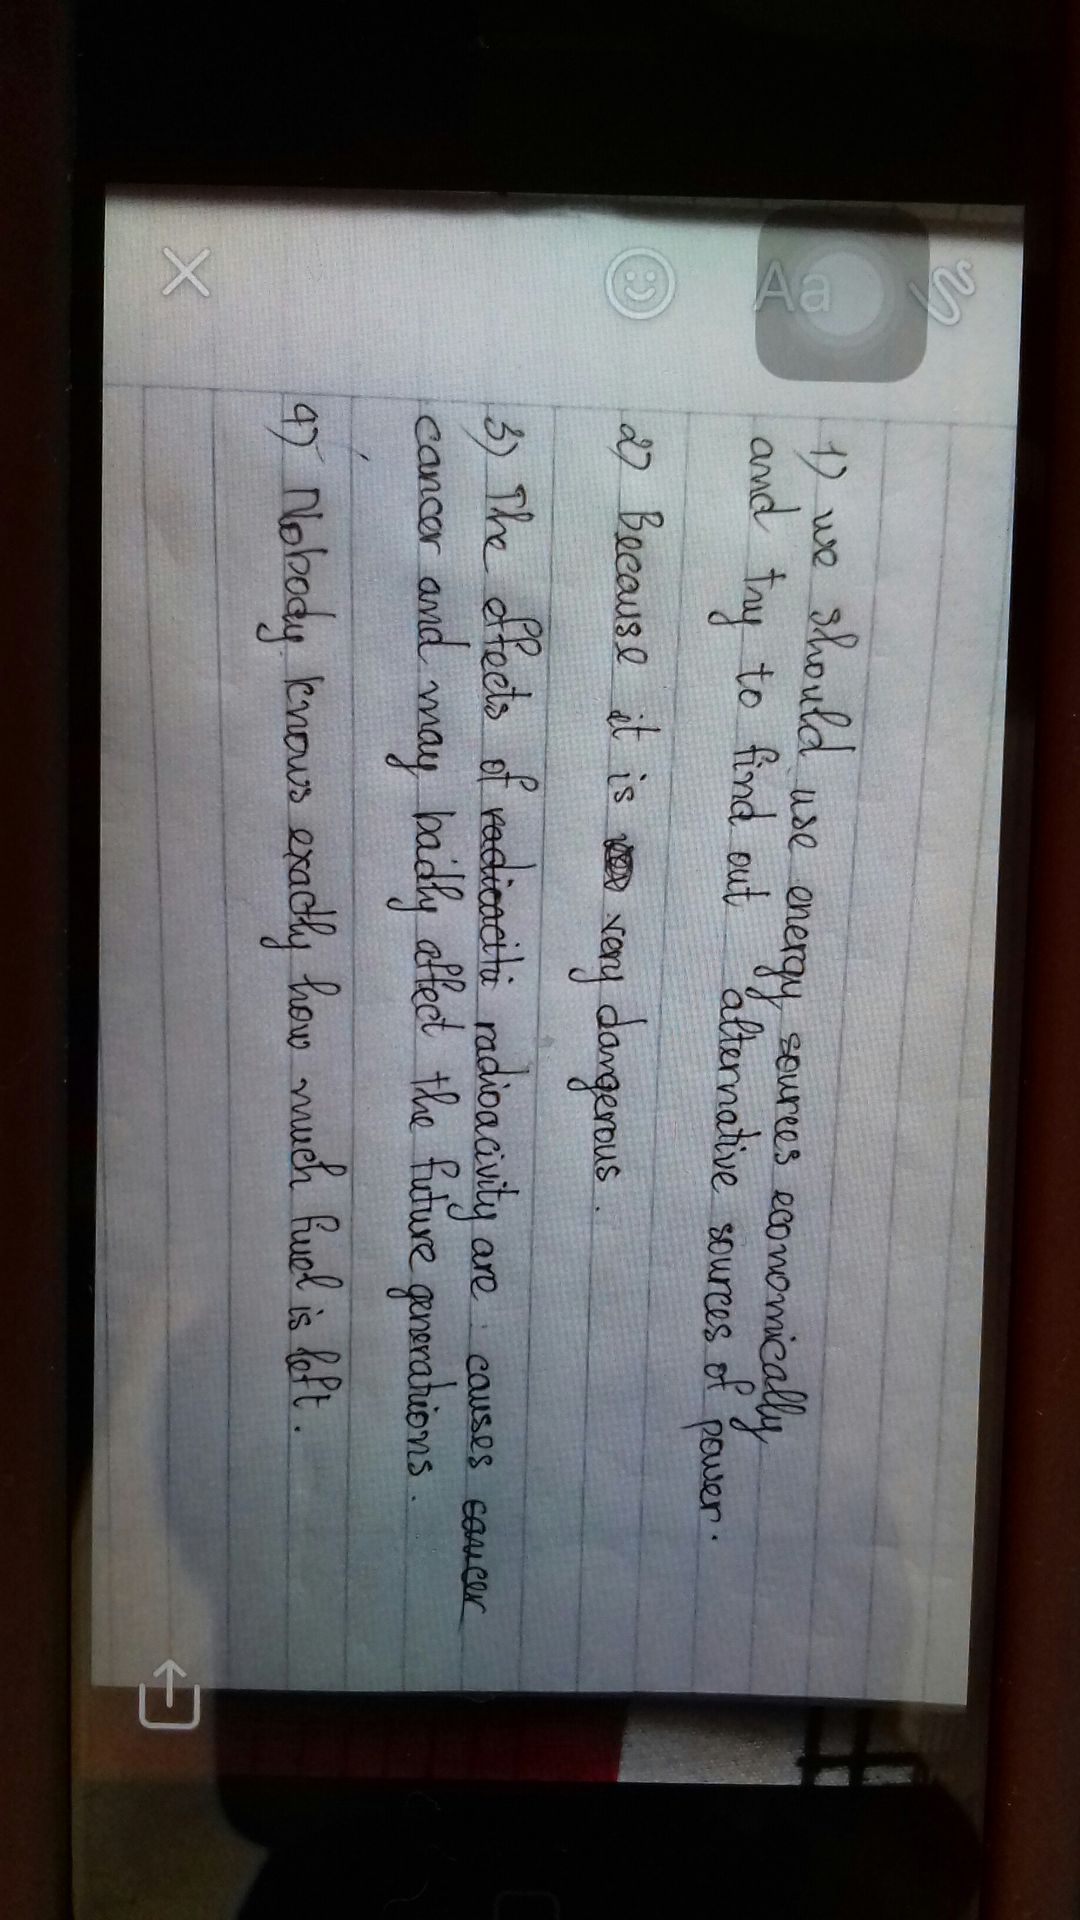 Aa
1) we should use energy sources economically
and try to find out alternative sources of power.
2) Because it is very dangerous.
3) The effects of radioacita radioacivity are : causes cancer
cancer and may badly affect the future generations.
4) Nobody knows exactly how much fuel is left.